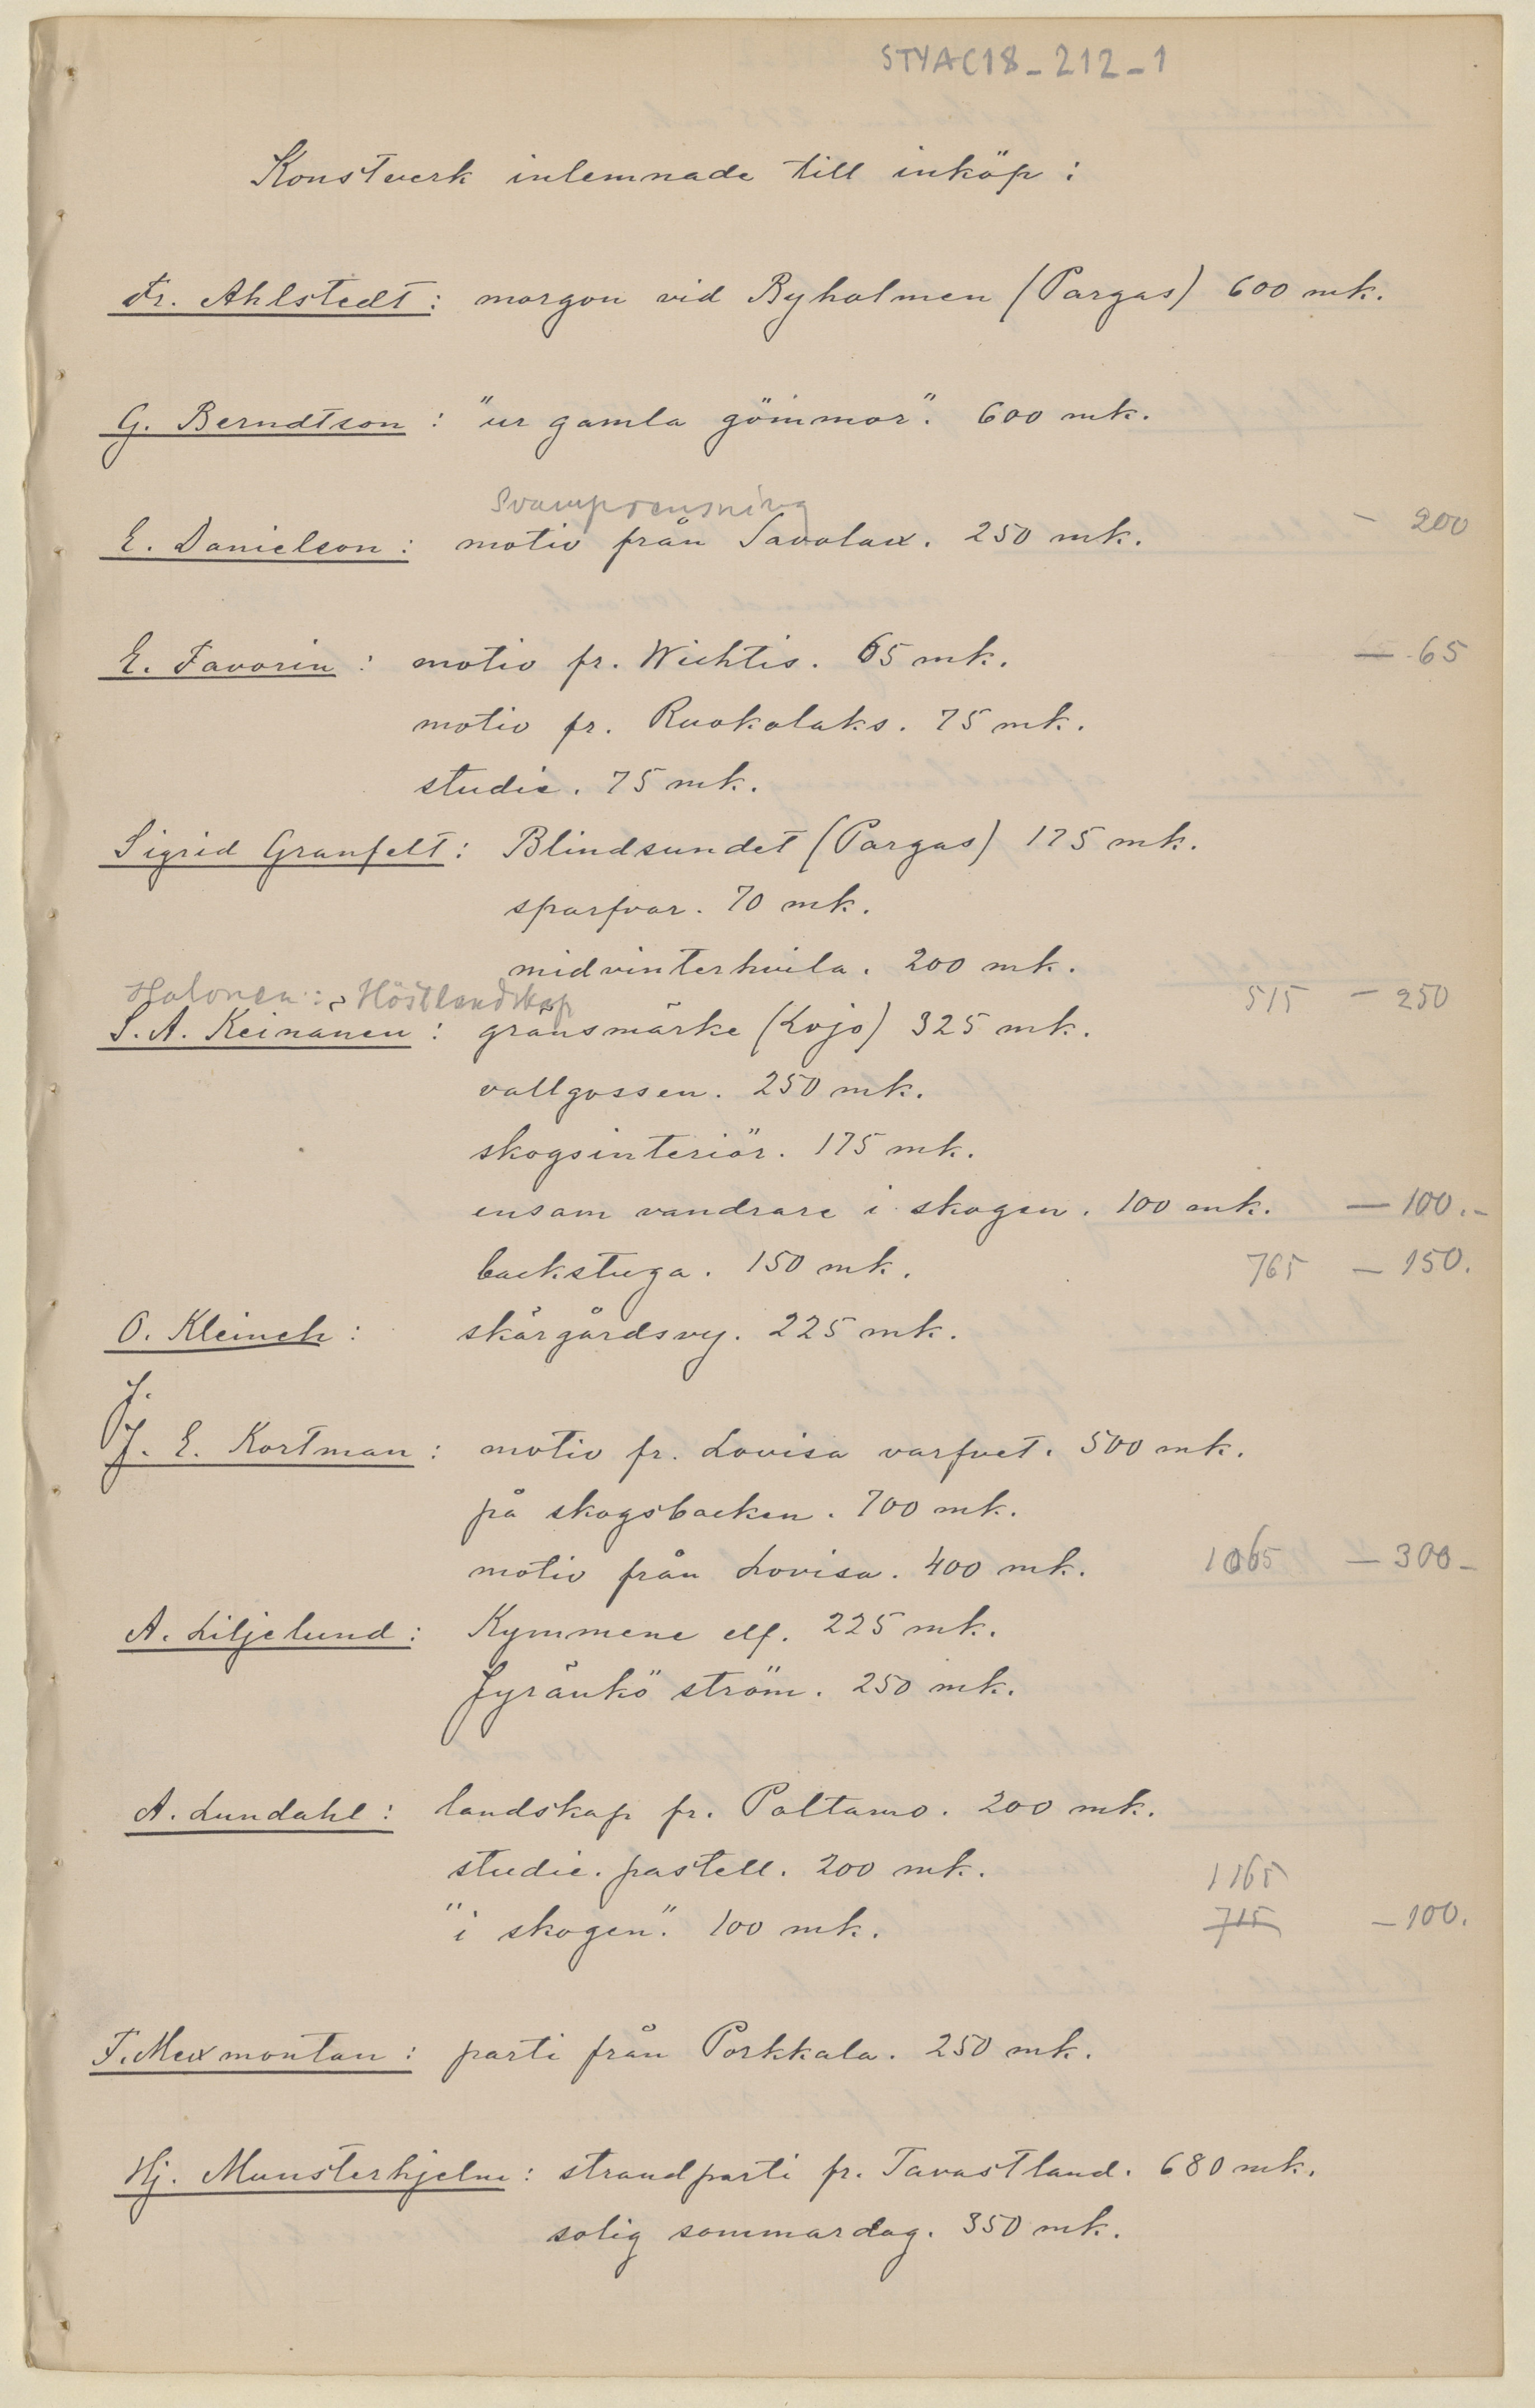 STYAC18_212_1
Konstverk inlemnade till inköp:
Fr. Ahlstedt: morgon vid Byholmen (Pargas) 600 mk.
G. Berndtson: "ur gamla gömmor". 600 mk.
Svamprensning
E. Danielson: motiv från Savolax. 250 mk. – 200
E. Favorin: motiv fr. Wichtis. 65 mk. — 65
motiv fr. Ruokolaks. 75 mk.
studie. 75 mk.
Sigrid Granfelt: Blindsundet (Pargas) 175 mk.
sparfvar. 70 mk.
midvinterhvila. 200 mk.
Halonen: Höstlandskap 515 – 250
S. A. Keinanen: gränsmärke (Lojo) 325 mk.
vallgossen. 250 mk.
skogsinteriör. 175 mk.
ensam vandrare i skogen. 100 mk. — 100.-
backstuga. 150 mk. 765 — 150.
O. Kleineh: skärgårdsvy. 225 mk.
J.
J. E. Kortman: motiv fr. Lovisa varfvet. 500 mk.
på skogsbacken. 700 mk.
motiv från Lovisa. 400 mk. 1065 — 300-
A. Liljelund: Kymmene elf. 225 mk.
Jyränkö ström. 250 mk.
A. Lundahl: landskap fr. Paltamo. 200 mk.
studie. pastell. 200 mk. 1165
"i skogen". 100 mk. 715 — 100.
F. Mexmontan: parti från Porkkala. 250 mk.
Hj. Munsterhjelm: strandparti fr. Tavastland. 680 mk.
solig sommardag. 350 mk.